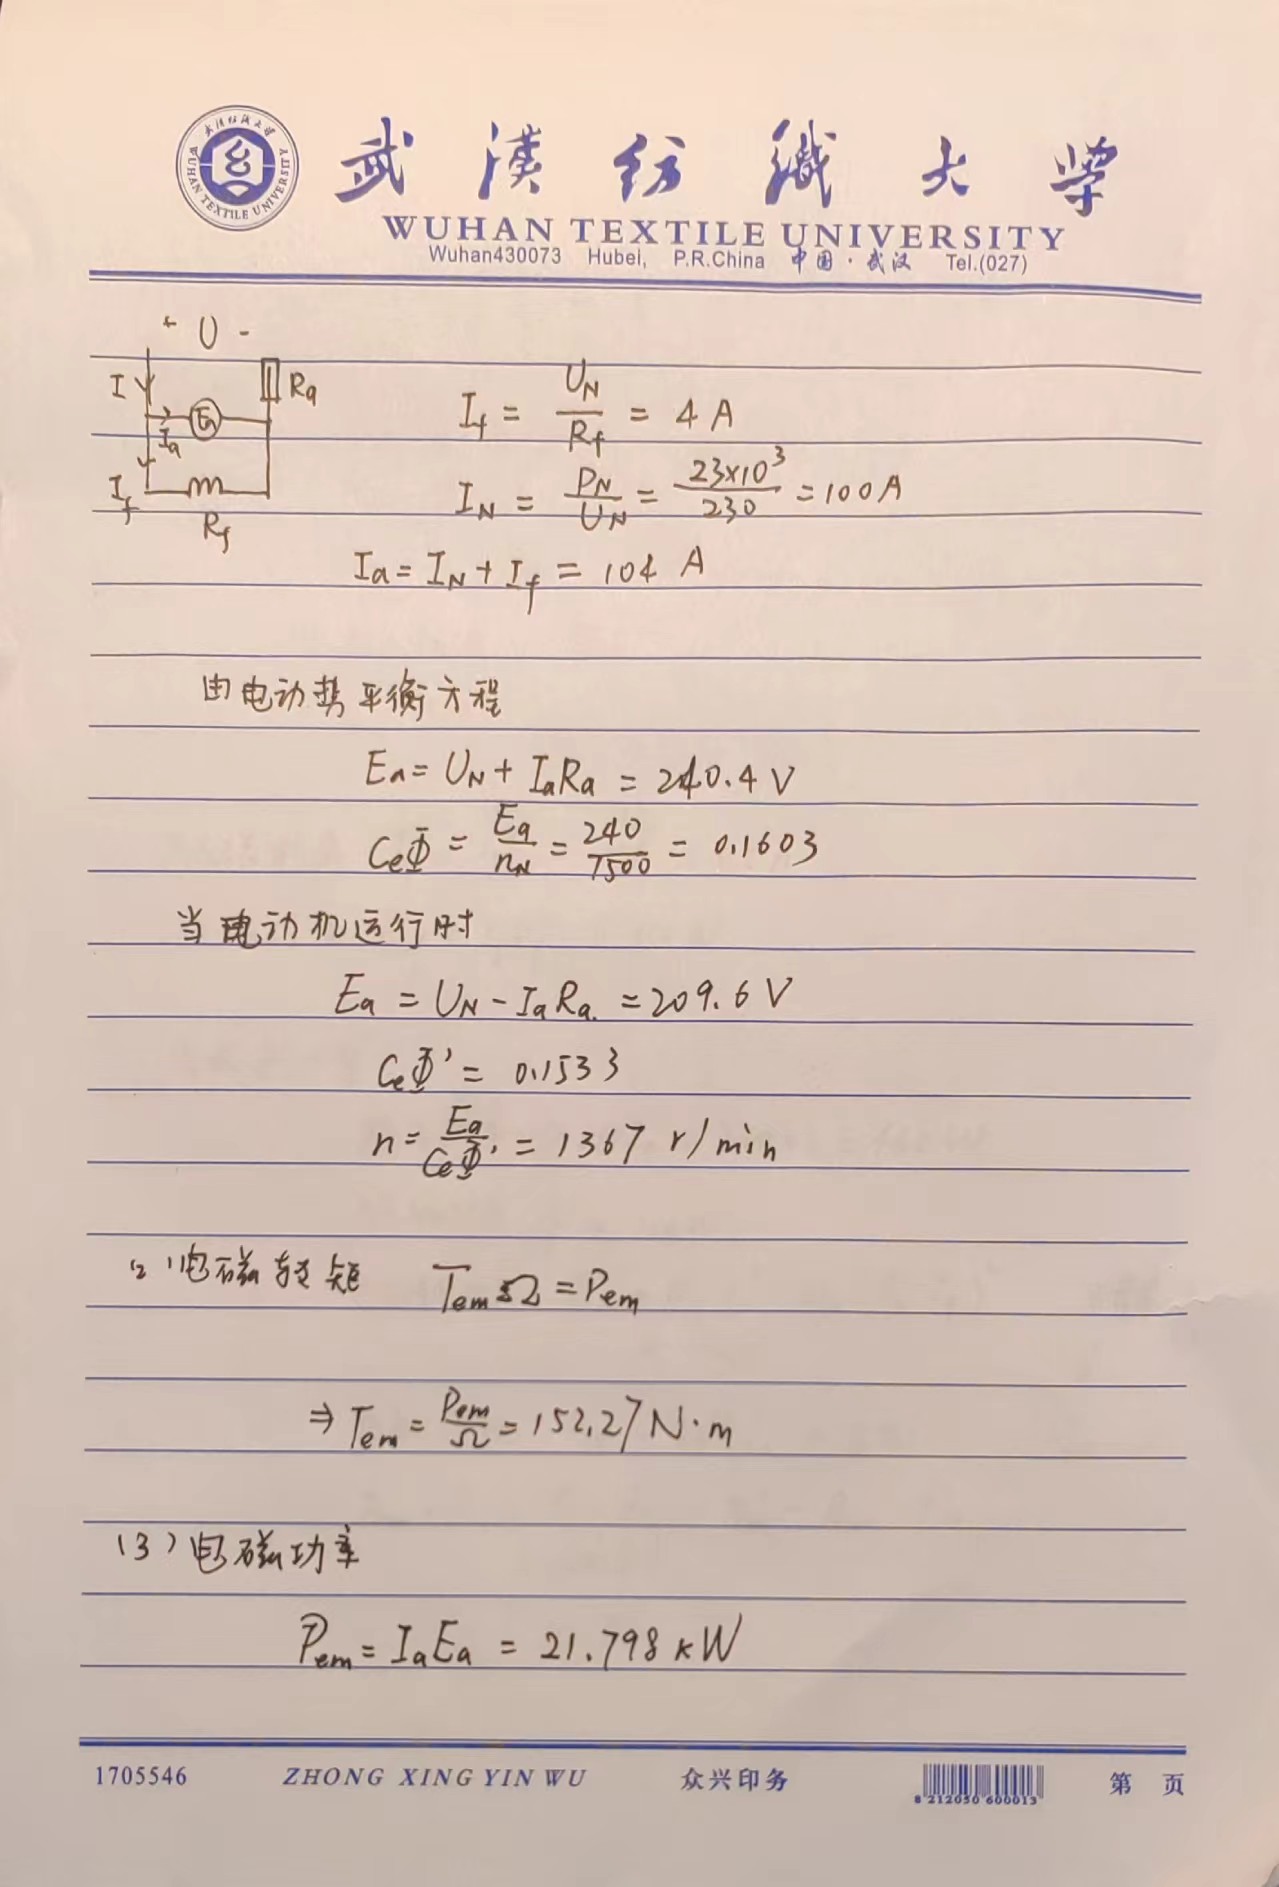 武汉纺织大学
WUHAN TEXTILE UNIVERSITY
Wuhan430073 Hubei, P.R.China 中国·武汉 Tel.(027)
+ U -
I Ra
Ea
Ia
If
Rf
If = UN/Rf = 4 A
IN = PN/UN = 23×10³/230 = 100A
Ia = IN + If = 104 A
由电动势平衡方程
Ea = UN + IaRa = 240.4 V
CeΦ = Ea/nN = 240/1500 = 0.1603
当电动机运行时
Ea = UN - IaRa. = 209.6 V
CeΦ' = 0.1533
n = Ea/CeΦ' = 1367 r/min
(2)电磁转矩 TemΩ = Pem
⇒ Tem = Pem/Ω = 152.27 N·m
(3)电磁功率
Pem = IaEa = 21.798 kW
1705546 ZHONG XING YIN WU 众兴印务 8 212050 600013 第 页